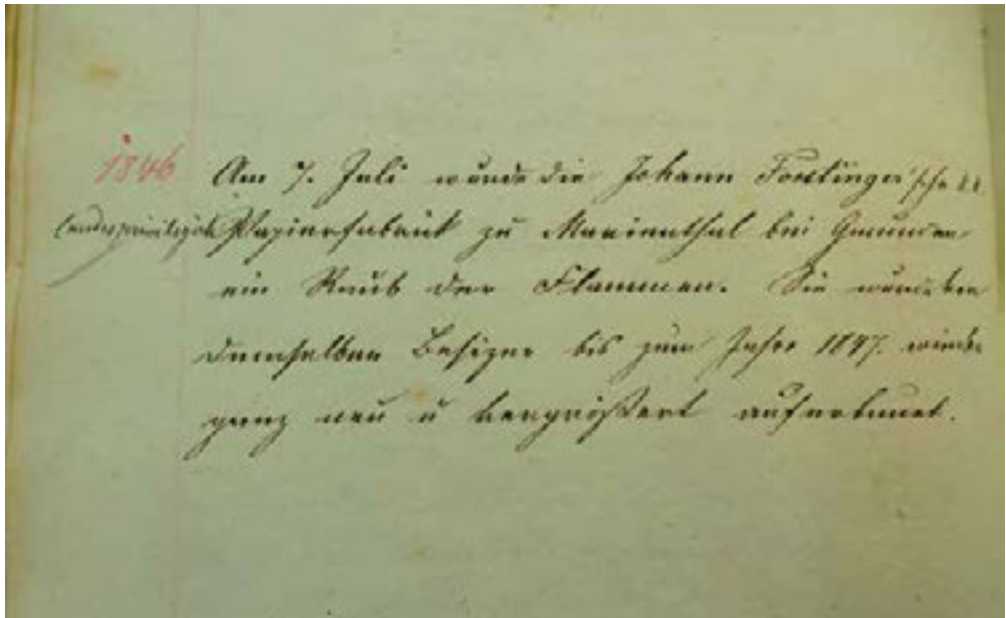 1846 Am 7. Juli wurde die Johann Foetinger'sche k.k.
landesprivilegirte Papierfabrick zu Marienthal bei Gmunden
ein Raub der Flammen. Sie wurde von
demselben Besizer bis zum Jahre 1847. wieder
ganz neu u vergrößert auferbauet.